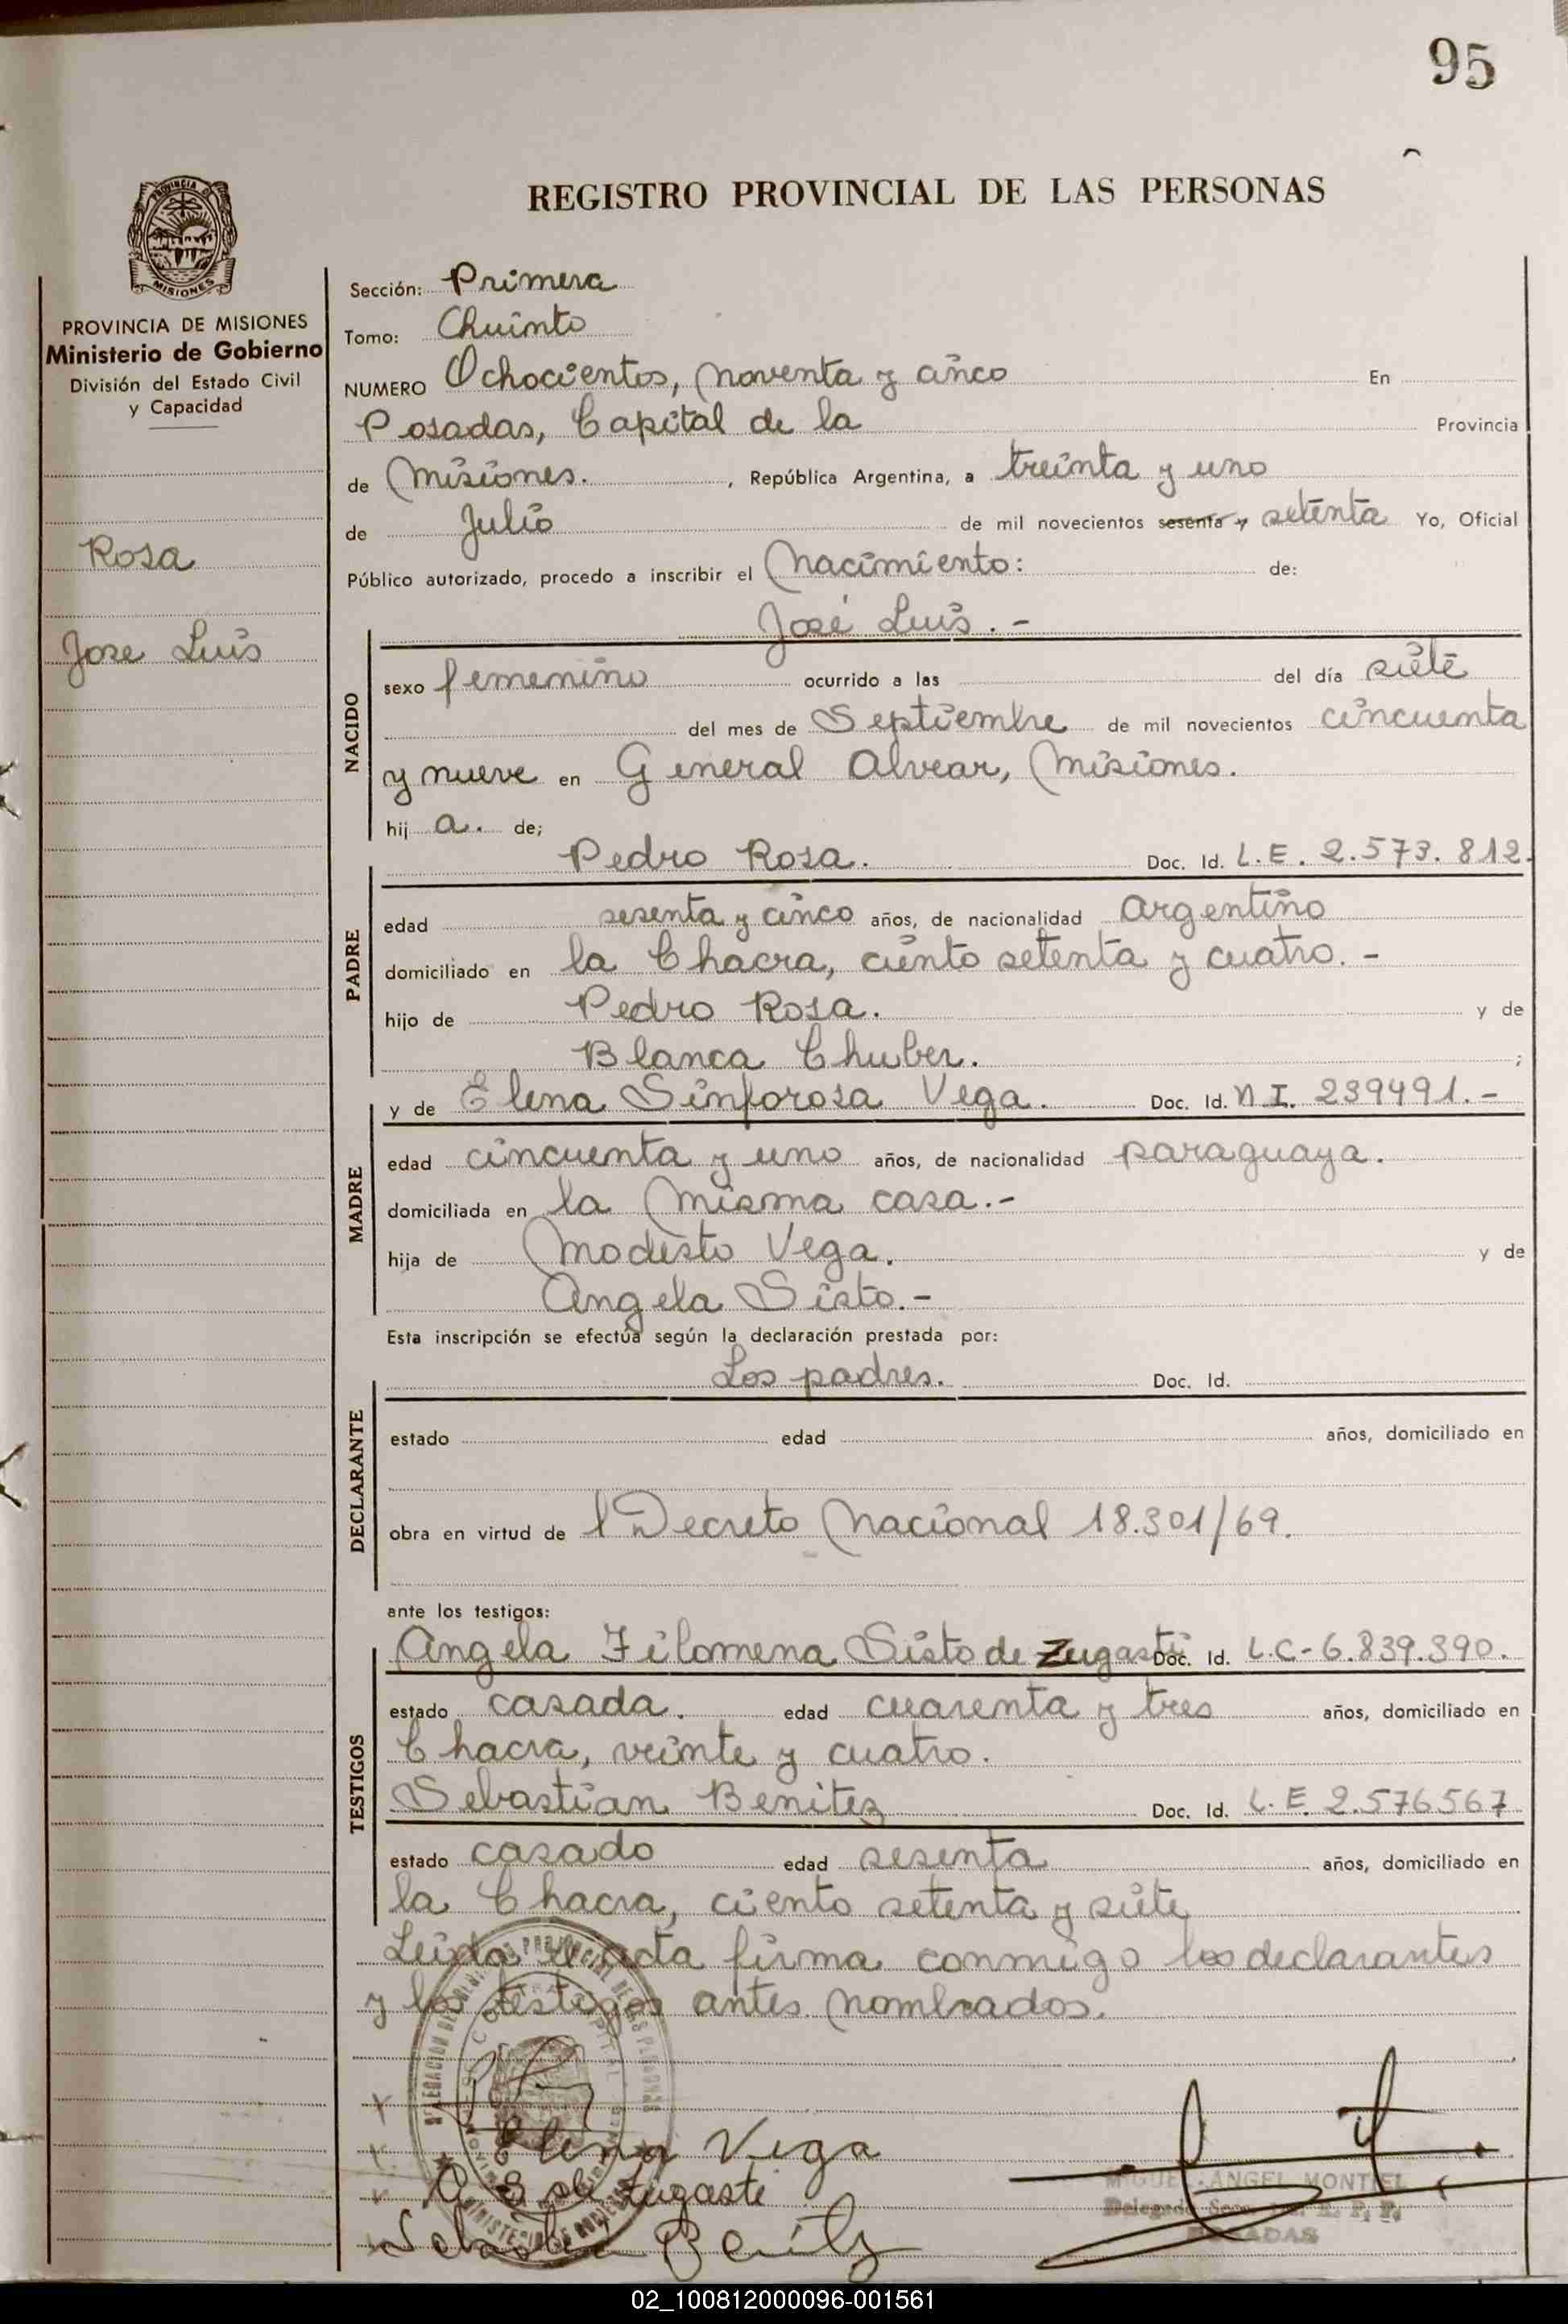 95
REGISTRO PROVINCIAL DE LAS PERSONAS
PROVINCIA DE MISIONES
Ministerio de Gobierno
División del Estado Civil
y Capacidad
Rosa
Jose Luis
Sección: Primera
Tomo: Chuinto
NUMERO Ochocientos, noventa y cinco En
Posadas, Capital de la Provincia
de Misiones. , República Argentina, a treinta y uno
de Julio de mil novecientos sesenta y setenta Yo, Oficial
Público autorizado, procedo a inscribir el Nacimiento: de:
José Luis. -
NACIDO
sexo femenino ocurrido a las del día siete
del mes de Septiembre de mil novecientos cincuenta
y nueve en General Alvear, Misiones.
hij a. de;
Pedro Rosa. Doc. Id. L.E. 2.573.812.
PADRE
edad sesenta y cinco años, de nacionalidad Argentino
domiciliado en la Chacra, ciento setenta y cuatro. -
hijo de Pedro Rosa. y de
Blanca Chuber. ;
y de Elena Sinforosa Vega. Doc. Id. N.I. 239491. -
MADRE
edad cincuenta y uno años, de nacionalidad paraguaya.
domiciliada en la Misma casa. -
hija de Modesto Vega. y de
Angela Sisto. -
Esta inscripción se efectúa según la declaración prestada por:
Los padres. Doc. Id.
DECLARANTE
estado edad años, domiciliado en
obra en virtud de l Decreto Nacional 18.301/69.
ante los testigos:
Angela Filomena Sisto de Zugasti Doc. Id. L.C-6.839.390.
TESTIGOS
estado casada. edad cuarenta y tres años, domiciliado en
Chacra, veinte y cuatro.
Sebastian Benitez Doc. Id. L.E. 2.576567
estado casado edad sesenta años, domiciliado en
la Chacra, ciento setenta y siete
Leida el acta firma conmigo los declarantes
y los testigos antes nombrados.
Elena Vega
A S de Zugasti
MIGUEL ANGEL MONTIEL
POSADAS
02_100812000096-001561